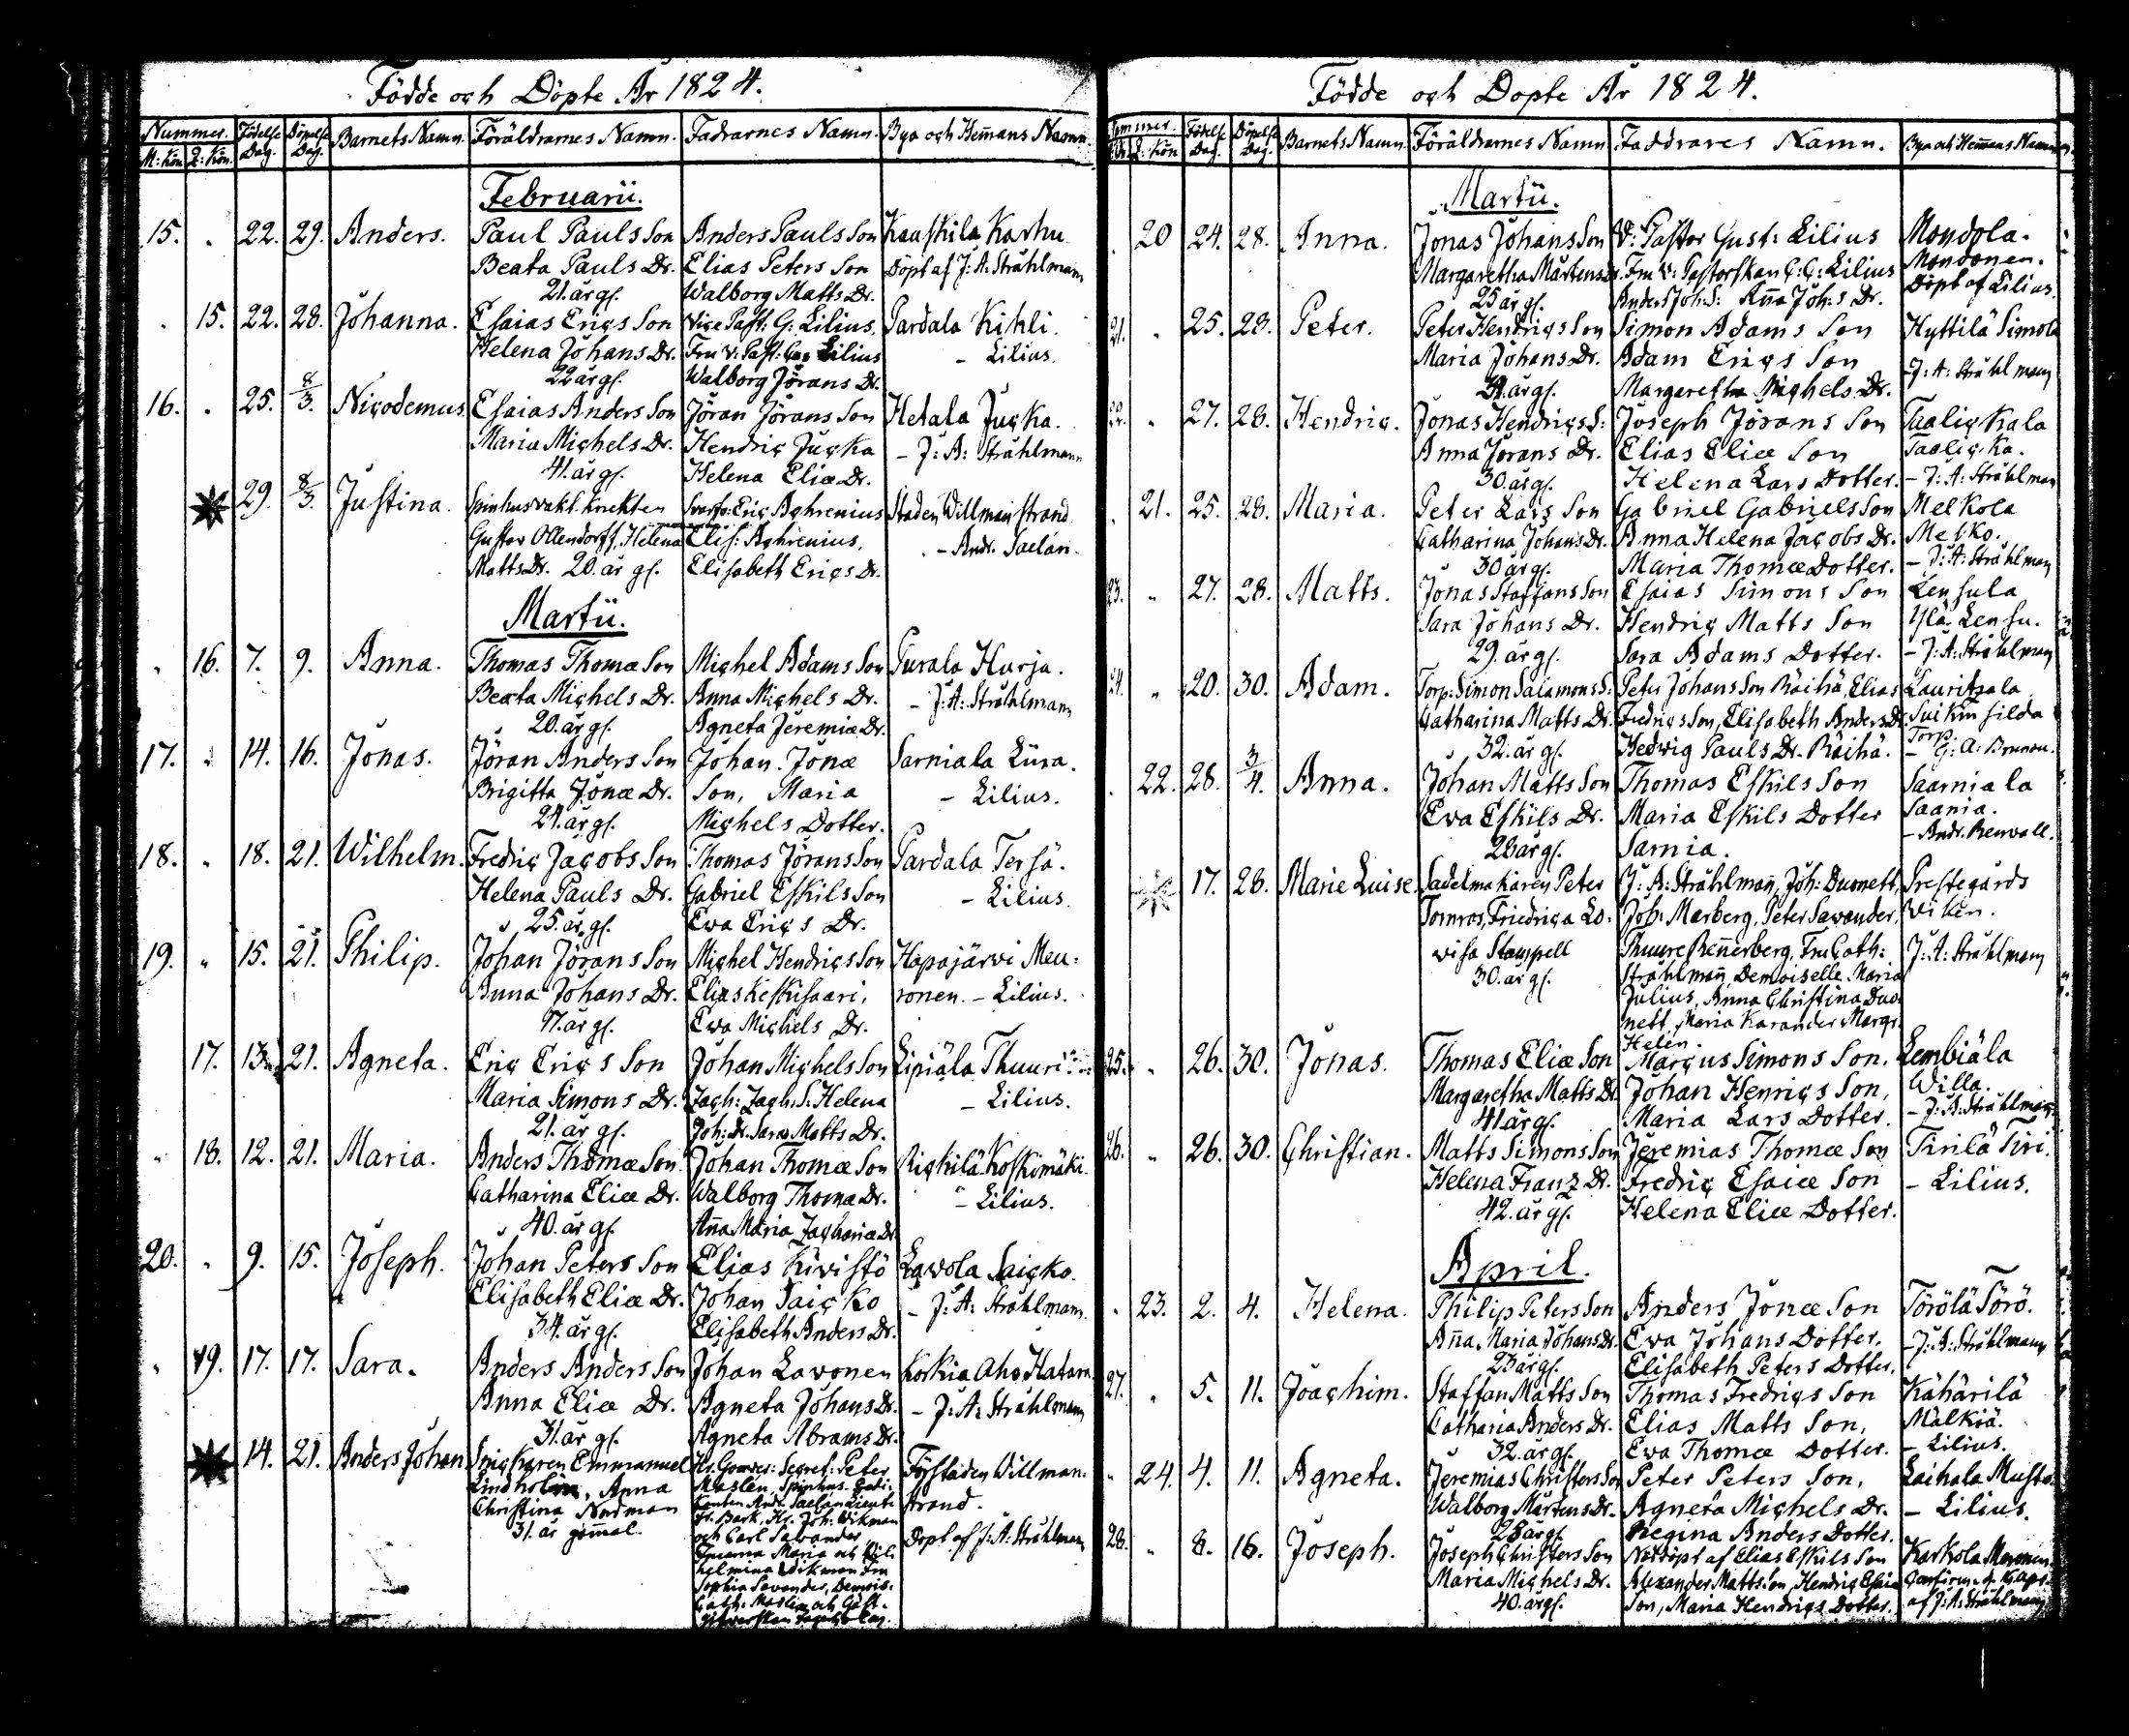 Födde och Döpte År 1824.
Nummer. Födelse Döpelse Barnets Namn. Föräldrarnes Namn. Fadrarnes Namn. Bya och Hem̄ans Namn.
M: Kön Q: Kön. Dag. Dag.
Februarii.
15. " 22. 29. Anders. Paul Pauls Son Anders Pauls Son Kauskila Karhu
Beata Pauls Dr. Elias Peters Son Döpt af J: A: Stråhlmann
21. år gl. Walborg Matts Dr.
" 15. 22. 28. Johanna. Esaias Erics Son Vice Past: G: Lilius. Pardala Kihli.
Helena Johans Dr. Fru V: Past: Lilius - Lilius.
22 år gl. Walborg Jörans Dr.
16. " 25. 8/3. Nicodemus Esaias Anders Son Jöran Jörans Son Hetala Jucka.
Maria Michels Dr. Hendric Jucka - J: A: Stråhlmann
41. år gl. Helena Eliæ Dr.
29. 8/3 Justina. Spinhusvakt. Knekten Eric Aghrenius Staden Willmanstrand
Gustav Ollendorff, Helena Elis: Aghrenius. - Andr. Saelan.
Matts Dr. 20. år gl. Elisabeth Erics Dr.
Martii.
" 16. 7. 9. Anna. Thomas Thomæ Son Michel Adams Son Purala Hurja.
Beata Michels Dr. Anna Michels Dr. - J: A: Stråhlmann
20. år gl. Agneta Jeremiæ Dr.
17. " 14. 16. Jonas. Jöran Anders Son Johan Jonæ Sarniala Liira.
Brigitta Jonæ Dr. Son, Maria - Lilius.
24. år gl. Michels Dotter.
18. " 18. 21. Wilhelm. Fredric Jacobs Son Thomas Jörans Son Pardala Tersä.
Helena Pauls Dr. Gabriel Eskils Son - Lilius.
25. år gl. Ewa Erics Dr.
19. " 15. 21. Philip. Johan Jörans Son Michel Hendrics Son Hapajärvi Meu:
Anna Johans Dr. Elias Keskisaari, ronen. - Lilius.
år gl. Ewa Michels Dr.
17. 13. 21. Agneta. Eric Erics Son Johan Michels Son Lipiäla Thuuri
Maria Simons Dr. Zach: Zach: S: Helena - Lilius.
21. år gl. Joh: Dr. Sara Matts Dr.
" 18. 12. 21. Maria. Anders Thomæ Son. Johan Thomæ Son Richilä Koskimäki.
Catharina Eliæ Dr. Walborg Thomæ Dr. - Lilius.
40. år gl. Ana Maria Zachariæ Dr
20. " 9. 15. Joseph. Johan Peters Son Elias Kivistö Lavola Saicko.
Elisabeth Eliæ Dr. Johan Saicko - J: A: Stråhlmann.
34. år gl. Elisabeth Anders Dr.
" 19. 17. 17. Sara. Anders Anders Son Johan Lavonen Korkia Aho Hatara
Anna Eliæ Dr. Agneta Johans Dr. - J: A: Stråhlmann
31. år gl. Agneta Abrams Dr.
14. 21. Anders Johan Snickaren Emmanuel Hr. Gouver: Secret: Peter Förstaden Willman:
Lindholm, Anna Maslén, Spinhus. strand.
Christina Nordman Andr. Saelan
31. år gamal. Fr. Bark, Hr. Joh: Wikman Döpt af J: A: Stråhlman
och Carl Savander
Fruarna Maria och Wil:
helmina Wikman Fru
Sophia Savander, Demois:
Cath: Maslén och Gäst-
Födde och Döpte År 1824.
Nummer. Födelse Döpelse Barnets Namn. Föräldrarnes Namn Faddrares Namn. Bya och Hem̄ans Namn
Q: Kön Dag. Dag.
Martii.
" 20 24. 28. Anna. Jonas Johans Son V: Pastor Gust: Lilius Mondola.
Margaretha Mårtens Dr. Fru V: Pastorskan C: G: Lilius Mondonen.
25 år gl. Anders Joh: S: Ana Joh: s Dr. Döpt af Lilius.
21. " 25. 28. Peter. Peter Hendrics Son Simon Adams Son Hyttilä Simola
Maria Johans Dr. Adam Erics Son - J: A: Stråhlmann
år gl. Margaretha Michels Dr.
22. " 27. 28. Hendric. Jonas Hendrics S: Joseph Jörans Son Taalickala
Anna Jörans Dr. Elias Eliæ Son Taalicka.
30. år gl. Helena Lars Dotter. - J: A: Stråhlman
" 21. 25. 28. Maria. Peter Lars Son Gabriel Gabriels Son Melkola
Catharina Johans Dr. Anna Helena Jacobs Dr. Melko.
30 år gl. Maria Thomæ Dotter. - J: A: Stråhlman
23. " 27. 28. Matts. Jonas Staffans Son Esaias Simons Son Lensula
Sara Johans Dr. Hendric Matts Son Ylä Lensu.
29. år gl. Sara Adams Dotter. - J: A: Stråhlman
24. " 20. 30. Adam. Torp: Simon Salamons S: Peter Johans Son Räihä, Elias Lauritzala
Catharina Matts Dr. Fredrics Son, Elisabeth Anders Dr.
32. år gl. Hedwig Pauls Dr. Räihä. Torp. - G: A: Brunou.
" 22. 28. 3/4. Anna. Johan Matts Son Thomas Eskils Son Saarniala
Ewa Eskils Dr. Maria Eskils Dotter Saania.
28 år gl. Sarnia. - Andr. Renvall.
17. 28. Marie Luise. Sadelmakaren Peter J: A: Stråhlman, Joh: Duonett, Prestegårds
Tornros, Friedrica Lo- Joh: Marberg, Peter Savander, viken.
visa Stampell Thuure Rennerberg, Fru Cath: J: A: Stråhlmann
30. år gl. Stråhlman, Demoiselle Maria
Julius, Anna Christina Duo-
nett, Maria Karander Margr.
Helen.
25. " 26. 30. Jonas. Thomas Eliæ Son Marcus Simons Son. Lembiäla
Margaretha Matts Dr. Johan Henrics Son, Willa.
41 år gl. Maria Lars Dotter. - J: A: Stråhlman
26. " 26. 30. Christian. Matts Simons Son Jeremias Thomæ Son Tirilä Tiri.
Helena Franz Dr. Fredric Esaiæ Son - Lilius.
42. år gl. Helena Eliæ Dotter.
April.
" 23. 2. 4. Helena. Philip Peters Son Anders Jonæ Son Törölä Törö.
Ana Maria Johans Dr. Ewa Johans Dotter. - J: A: Stråhlmann
23 år gl. Elisabeth Peters Dotter.
27. " 5. 11. Joachim. Staffan Matts Son Thomas Fredrics Son Kähärilä
Catharia Anders Dr. Elias Matts Son, Mälkiä.
32. år gl. Ewa Thomæ Dotter. - Lilius.
" 24. 4. 11. Agneta. Jeremias Christers Son Peter Peters Son, Laihala Musto
Walborg Mårtens Dr. Agneta Michels Dr. - Lilius.
28 år gl. Regina Anders Dotter.
28. " 8. 16. Joseph. Joseph Christers Son Nöddöpt af Elias Eskils Son Karkola
Maria Michels Dr. Alexander Matts Son, Hendric Esaiæ
40. år gl. Son, Maria Hendrics Dotter. af J: A: Stråhlmann